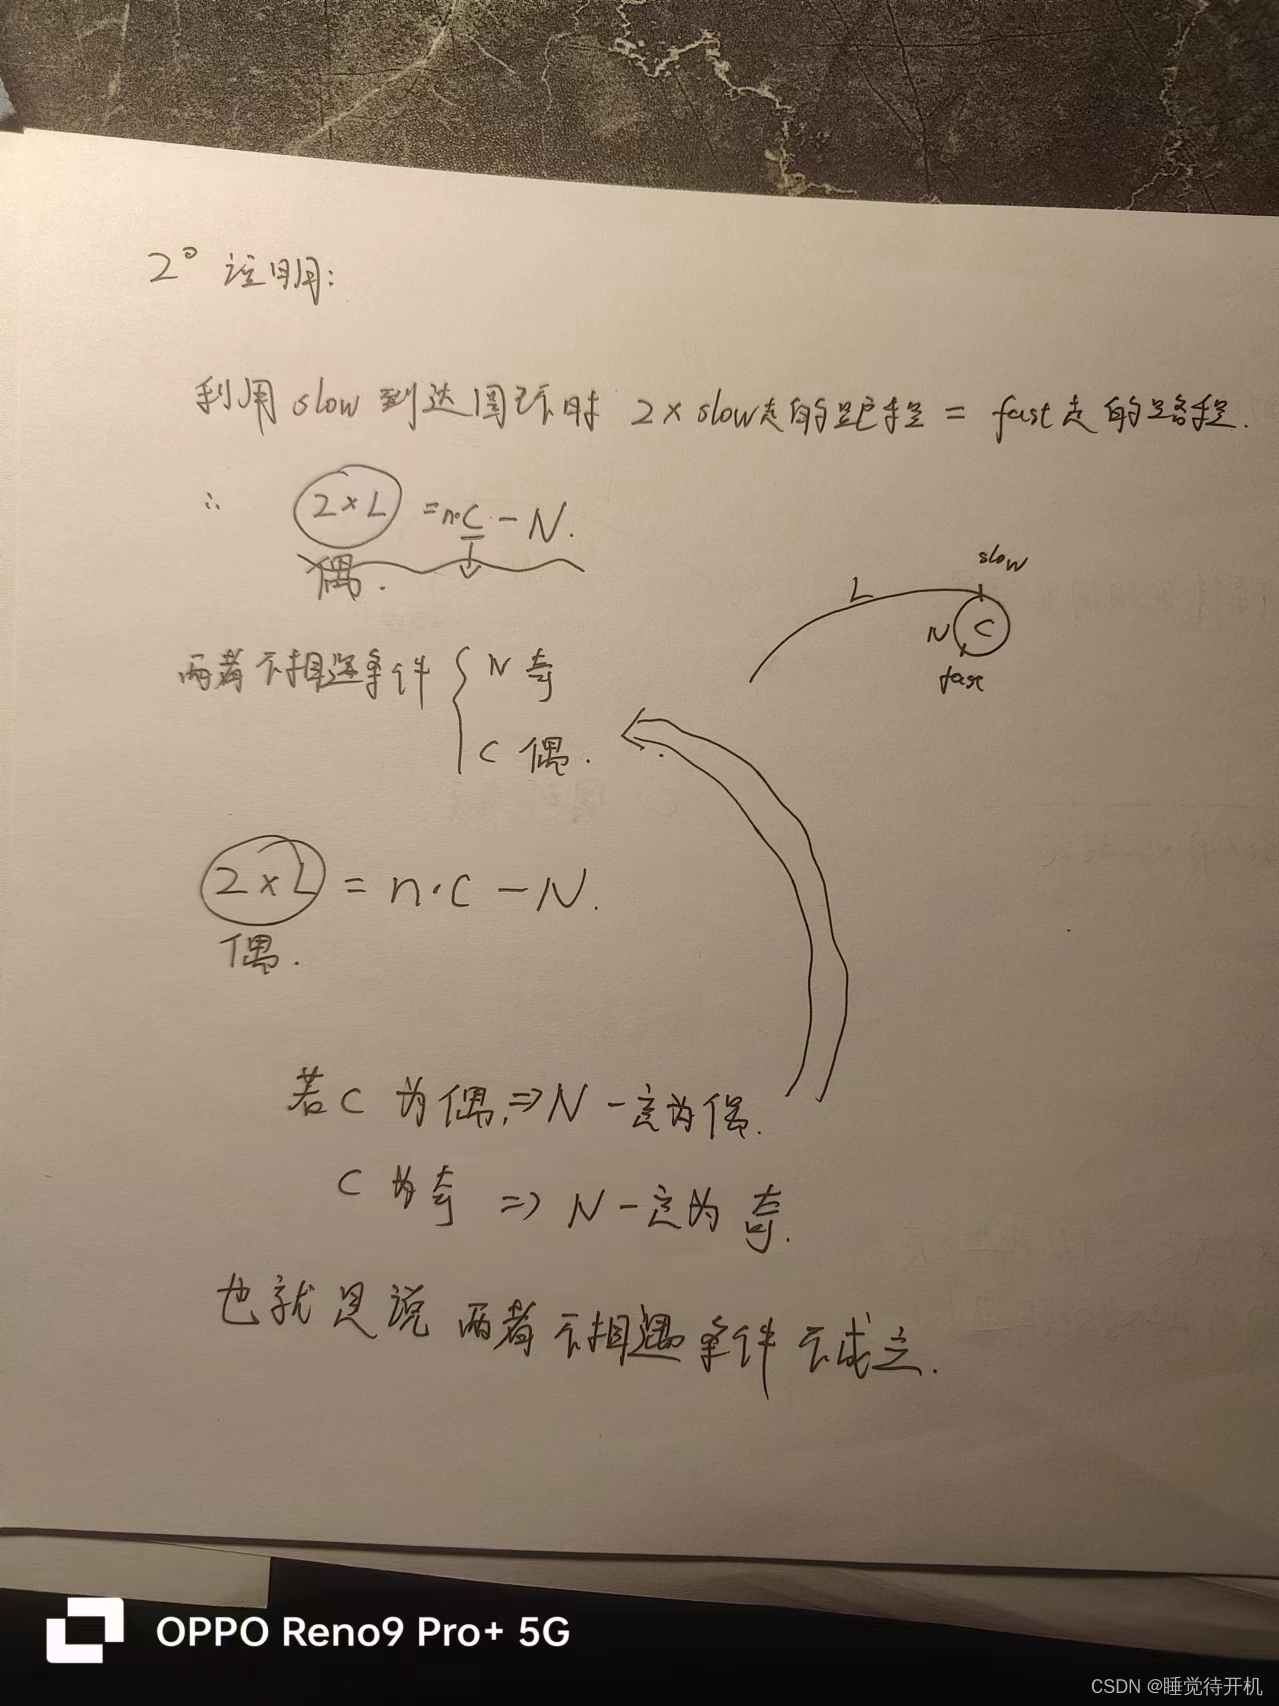 2° 证明:
利用 slow 到达圆环时 2×slow走的路程 = fast走的路程.
∴ 2×L = n·C - N.
偶.
slow
L
N C
fast
两者不相遇条件 { N 奇
C 偶.
2×L = n·C - N.
偶.
若 C 为偶, => N 一定为偶.
C 为奇 => N 一定为 奇.
也就是说 两者不相遇条件不成立.
OPPO Reno9 Pro+ 5G
CSDN @睡觉待开机